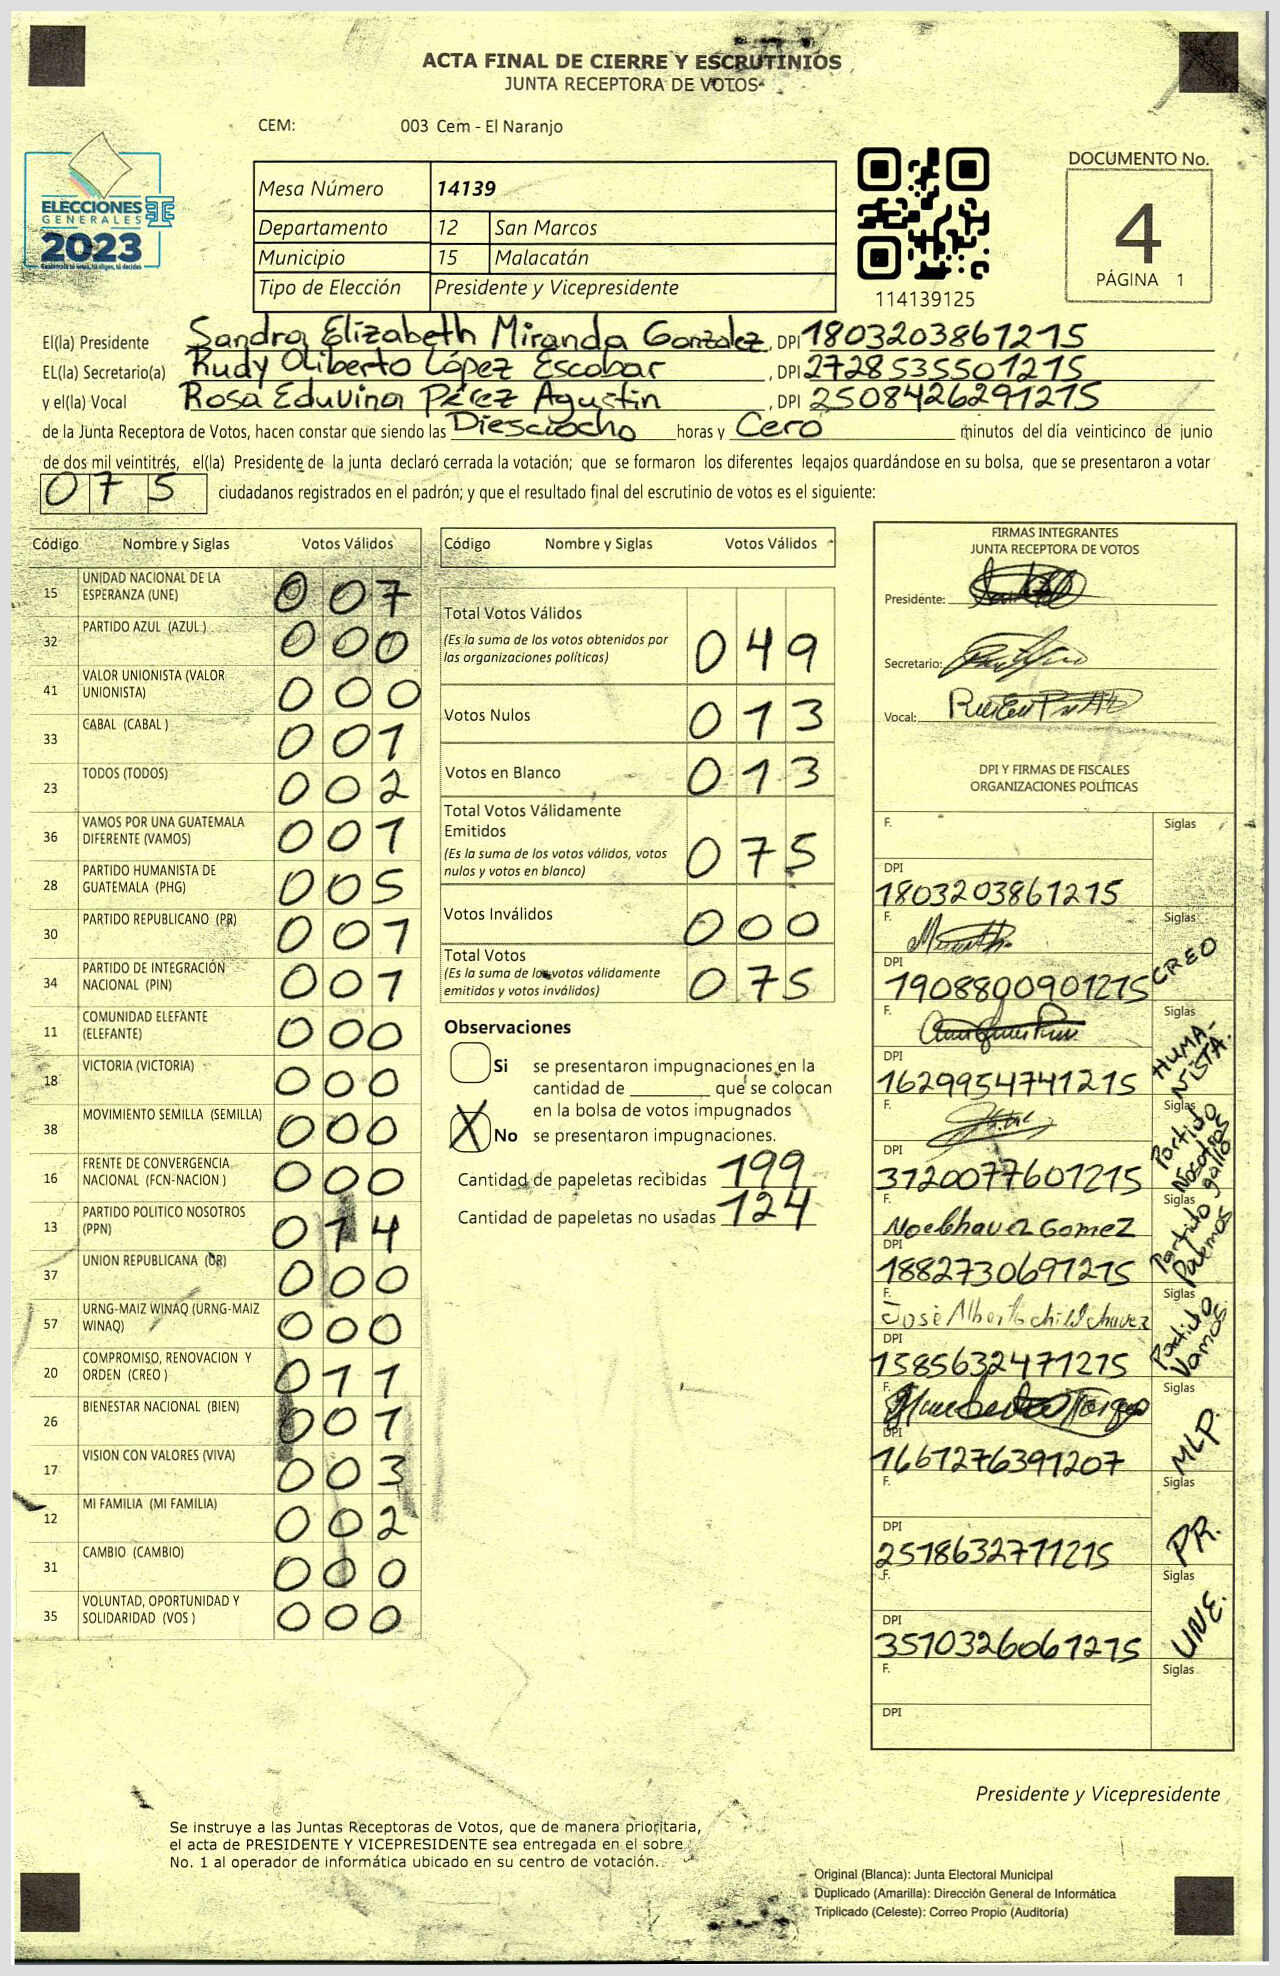 ACTA FINAL DE CIERRE Y ESCRUTINIOS
JUNTA RECEPTORA DE VOTOS
CEM: 003 Cem - El Naranjo
ELECCIONES
GENERALES
2023
Mesa Número 14139
Departamento 12 San Marcos
Municipio 15 Malacatán
Tipo de Elección Presidente y Vicepresidente
114139125
DOCUMENTO No.
4
PÁGINA 1
El(la) Presidente Sandra Elizabeth Miranda Gonzalez, DPI 1803203861215
EL(la) Secretario(a) Rudy Oliberto López Escobar, DPI 2728535501215
y el(la) Vocal Rosa Eduvina Pérez Agustin, DPI 2508426291215
de la Junta Receptora de Votos, hacen constar que siendo las Diesciocho horas y Cero minutos del día veinticinco de junio
de dos mil veintitrés, el(la) Presidente de la junta declaró cerrada la votación; que se formaron los diferentes legajos quardándose en su bolsa, que se presentaron a votar
075 ciudadanos registrados en el padrón; y que el resultado final del escrutinio de votos es el siguiente:
Código Nombre y Siglas Votos Válidos
15 UNIDAD NACIONAL DE LA ESPERANZA (UNE) 007
32 PARTIDO AZUL (AZUL ) 000
41 VALOR UNIONISTA (VALOR UNIONISTA) 000
33 CABAL (CABAL ) 001
23 TODOS (TODOS) 002
36 VAMOS POR UNA GUATEMALA DIFERENTE (VAMOS) 001
28 PARTIDO HUMANISTA DE GUATEMALA (PHG) 005
30 PARTIDO REPUBLICANO (PR) 001
34 PARTIDO DE INTEGRACIÓN NACIONAL (PIN) 001
11 COMUNIDAD ELEFANTE (ELEFANTE) 000
18 VICTORIA (VICTORIA) 000
38 MOVIMIENTO SEMILLA (SEMILLA) 000
16 FRENTE DE CONVERGENCIA NACIONAL (FCN-NACION ) 000
13 PARTIDO POLITICO NOSOTROS (PPN) 014
37 UNION REPUBLICANA (UR) 000
57 URNG-MAIZ WINAQ (URNG-MAIZ WINAQ) 000
20 COMPROMISO, RENOVACION Y ORDEN (CREO ) 011
26 BIENESTAR NACIONAL (BIEN) 001
17 VISION CON VALORES (VIVA) 003
12 MI FAMILIA (MI FAMILIA) 002
31 CAMBIO (CAMBIO) 000
35 VOLUNTAD, OPORTUNIDAD Y SOLIDARIDAD (VOS ) 000
Código Nombre y Siglas Votos Válidos
Total Votos Válidos 049
(Es la suma de los votos obtenidos por
las organizaciones políticas)
Votos Nulos 013
Votos en Blanco 013
Total Votos Válidamente
Emitidos 075
(Es la suma de los votos válidos, votos
nulos y votos en blanco)
Votos Inválidos 000
Total Votos 075
(Es la suma de los votos válidamente
emitidos y votos inválidos)
Observaciones
Si se presentaron impugnaciones en la
cantidad de ________ que se colocan
en la bolsa de votos impugnados
X No se presentaron impugnaciones.
Cantidad de papeletas recibidas 199
Cantidad de papeletas no usadas 124
FIRMAS INTEGRANTES
JUNTA RECEPTORA DE VOTOS
Presidente:
Secretario:
Vocal:
DPI Y FIRMAS DE FISCALES
ORGANIZACIONES POLÍTICAS
F. Siglas
DPI
1803203861215
F. Siglas
DPI CREO
1908800901215
F. Siglas
DPI HUMANISTA.
1629954741215
F. Siglas
DPI Partido Nosotros gallo
3120077601215
F. Siglas
Noe Chavez Gomez
DPI Partido Podemos
1882730691215
F. Siglas
José Alberto Chavez
DPI Partido Vamos
1585632471215
F. Siglas
DPI MLP.
1661276391207
F. Siglas
DPI PR.
2518632711215
F. Siglas
DPI UNE.
3510326061215
F. Siglas
DPI
Presidente y Vicepresidente
Se instruye a las Juntas Receptoras de Votos, que de manera prioritaria,
el acta de PRESIDENTE Y VICEPRESIDENTE sea entregada en el sobre
No. 1 al operador de informática ubicado en su centro de votación.
Original (Blanca): Junta Electoral Municipal
Duplicado (Amarilla): Dirección General de Informática
Triplicado (Celeste): Correo Propio (Auditoría)